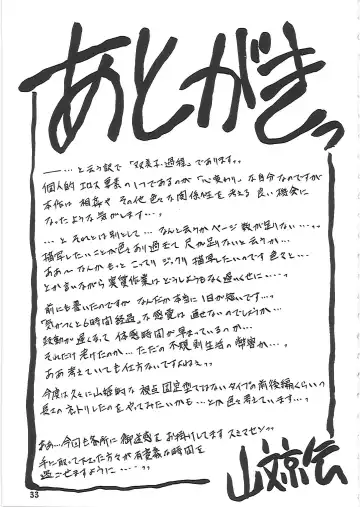 あとがきっ
――…と云う訳で「双美子・過程」であります。。
個人的エロス要素の1つであるのが「心変わり」な自分なのですが
本作は相姦やその他色々な関係性を考える良い機会に
なったような気がします…。
…とそれとは別として…なんと云うかページ数が足りない…。。
描写したいことが色々あり過ぎて尺が足りないと云うか…
ああ～なんかもっとこってりジックリ描写したいのです色々と…
とか言いながら実質作業はどうしようもなく遅いくせに…。
前にも書いたのですがなんだか本当に1日が短いです…。
『気がつくと6時間経過』な感覚は直せないのでしょうか…
鼓動が遅くなって体感時間が早まっているのか…
それだけ老けたのか…ただの不規則生活の弊害か…。
ああ考えていても仕方ないですよねぇ。
今度は久々に山姫的な視点固定型ではないタイプの前後編くらいの
長さのネトリしたのをやってみたいかも…とか色々考えています…。
ああ…今回も各所に御迷惑をお掛けしてますスミマセン。
手に取って下さった方々が有意義な時間を
過ごせますように…。。
山文京伝
33